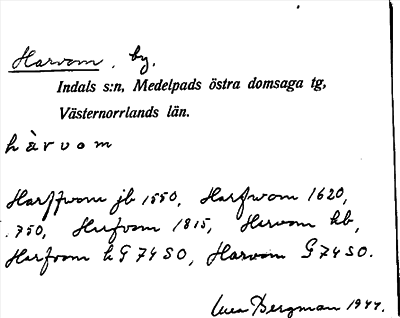 Harvom, by.
Indals s:n, Medelpads östra domsaga tg,
Västernorrlands län.
hàrvom
Harffwom jb 1550, Harfwom 1620,
750, Herfvom 1815, Hervom kb,
Harfvom h G 74 SO, Harvom G 74 SO.
Bergman 1944.